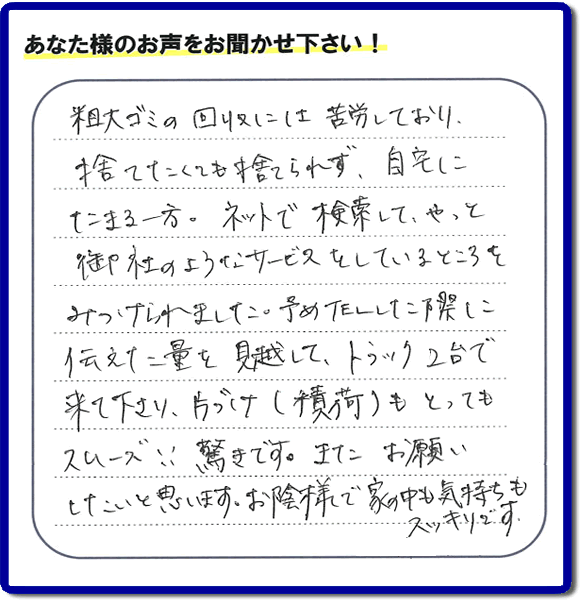 あなた様のお声をお聞かせ下さい！
粗大ゴミの回収には苦労しており、
捨てたくても捨てられず、自宅に
たまる一方。ネットで検索して、やっと
御社のようなサービスをしているところを
みつけられました。予めTELした際に
伝えた量を見越して、トラック2台で
来て下さり、片づけ(積荷)もとっても
スムーズ!! 驚きです。またお願い
したいと思います。お陰様で家の中も気持ちも
スッキリです。